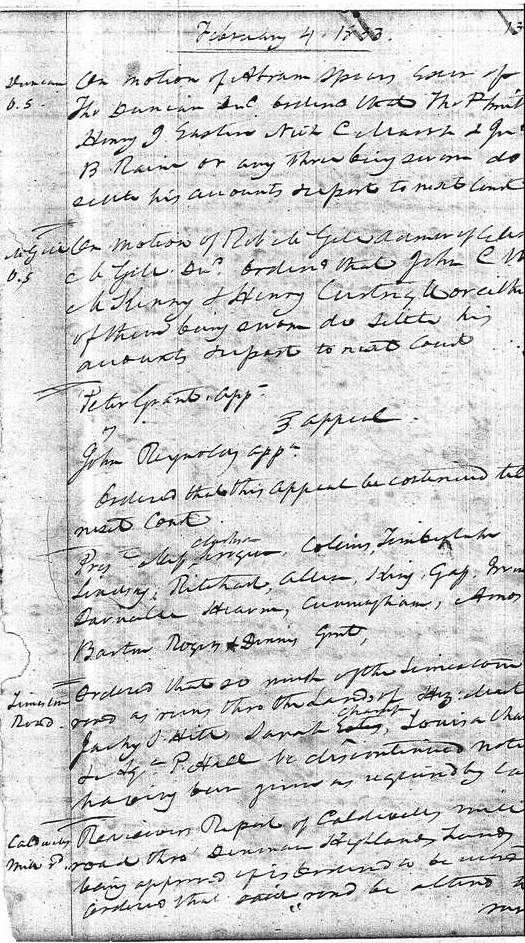 February 4. 1833.
13
Duncan
O.S.
On motion of Abram Spears Exer of
Tho Duncan Dec ordered that Tho P Smith
Henry J Eastin Nich C Marsh & Jn
B Raine or any three being sworn do
settle his accounts & report to next Court
McGill
O.S
On motion of Rob McGill admr of
McGill Decd Ordered that John C W
McKenny & Henry Curtright or eithe
of them being sworn do settle his
accounts & report to next Court
Peter Grant. app
v
appeal.
John Reynolds app
Ordered that this appeal be continued til
next Court.
Pres Collins, Timberlake
Lindsay, Pritchard, Allen, King, Gass,
Darnall Hearn, Cunningham, Amos
Barton Rogers & Dennis Gent,
Limestone
Road.
Ordered that so much of the Limestone
road as runs thro the Lands of
Jacky S Hitt Sarah Louisa
& P. Hall be discontinued noti
having been given as required by La
Caldwells
Mill Rd.
Reviewers Report of Caldwells mill
road thro' Denman Highlands Lands
being approved of is ordered to be
Ordered that said road be altered